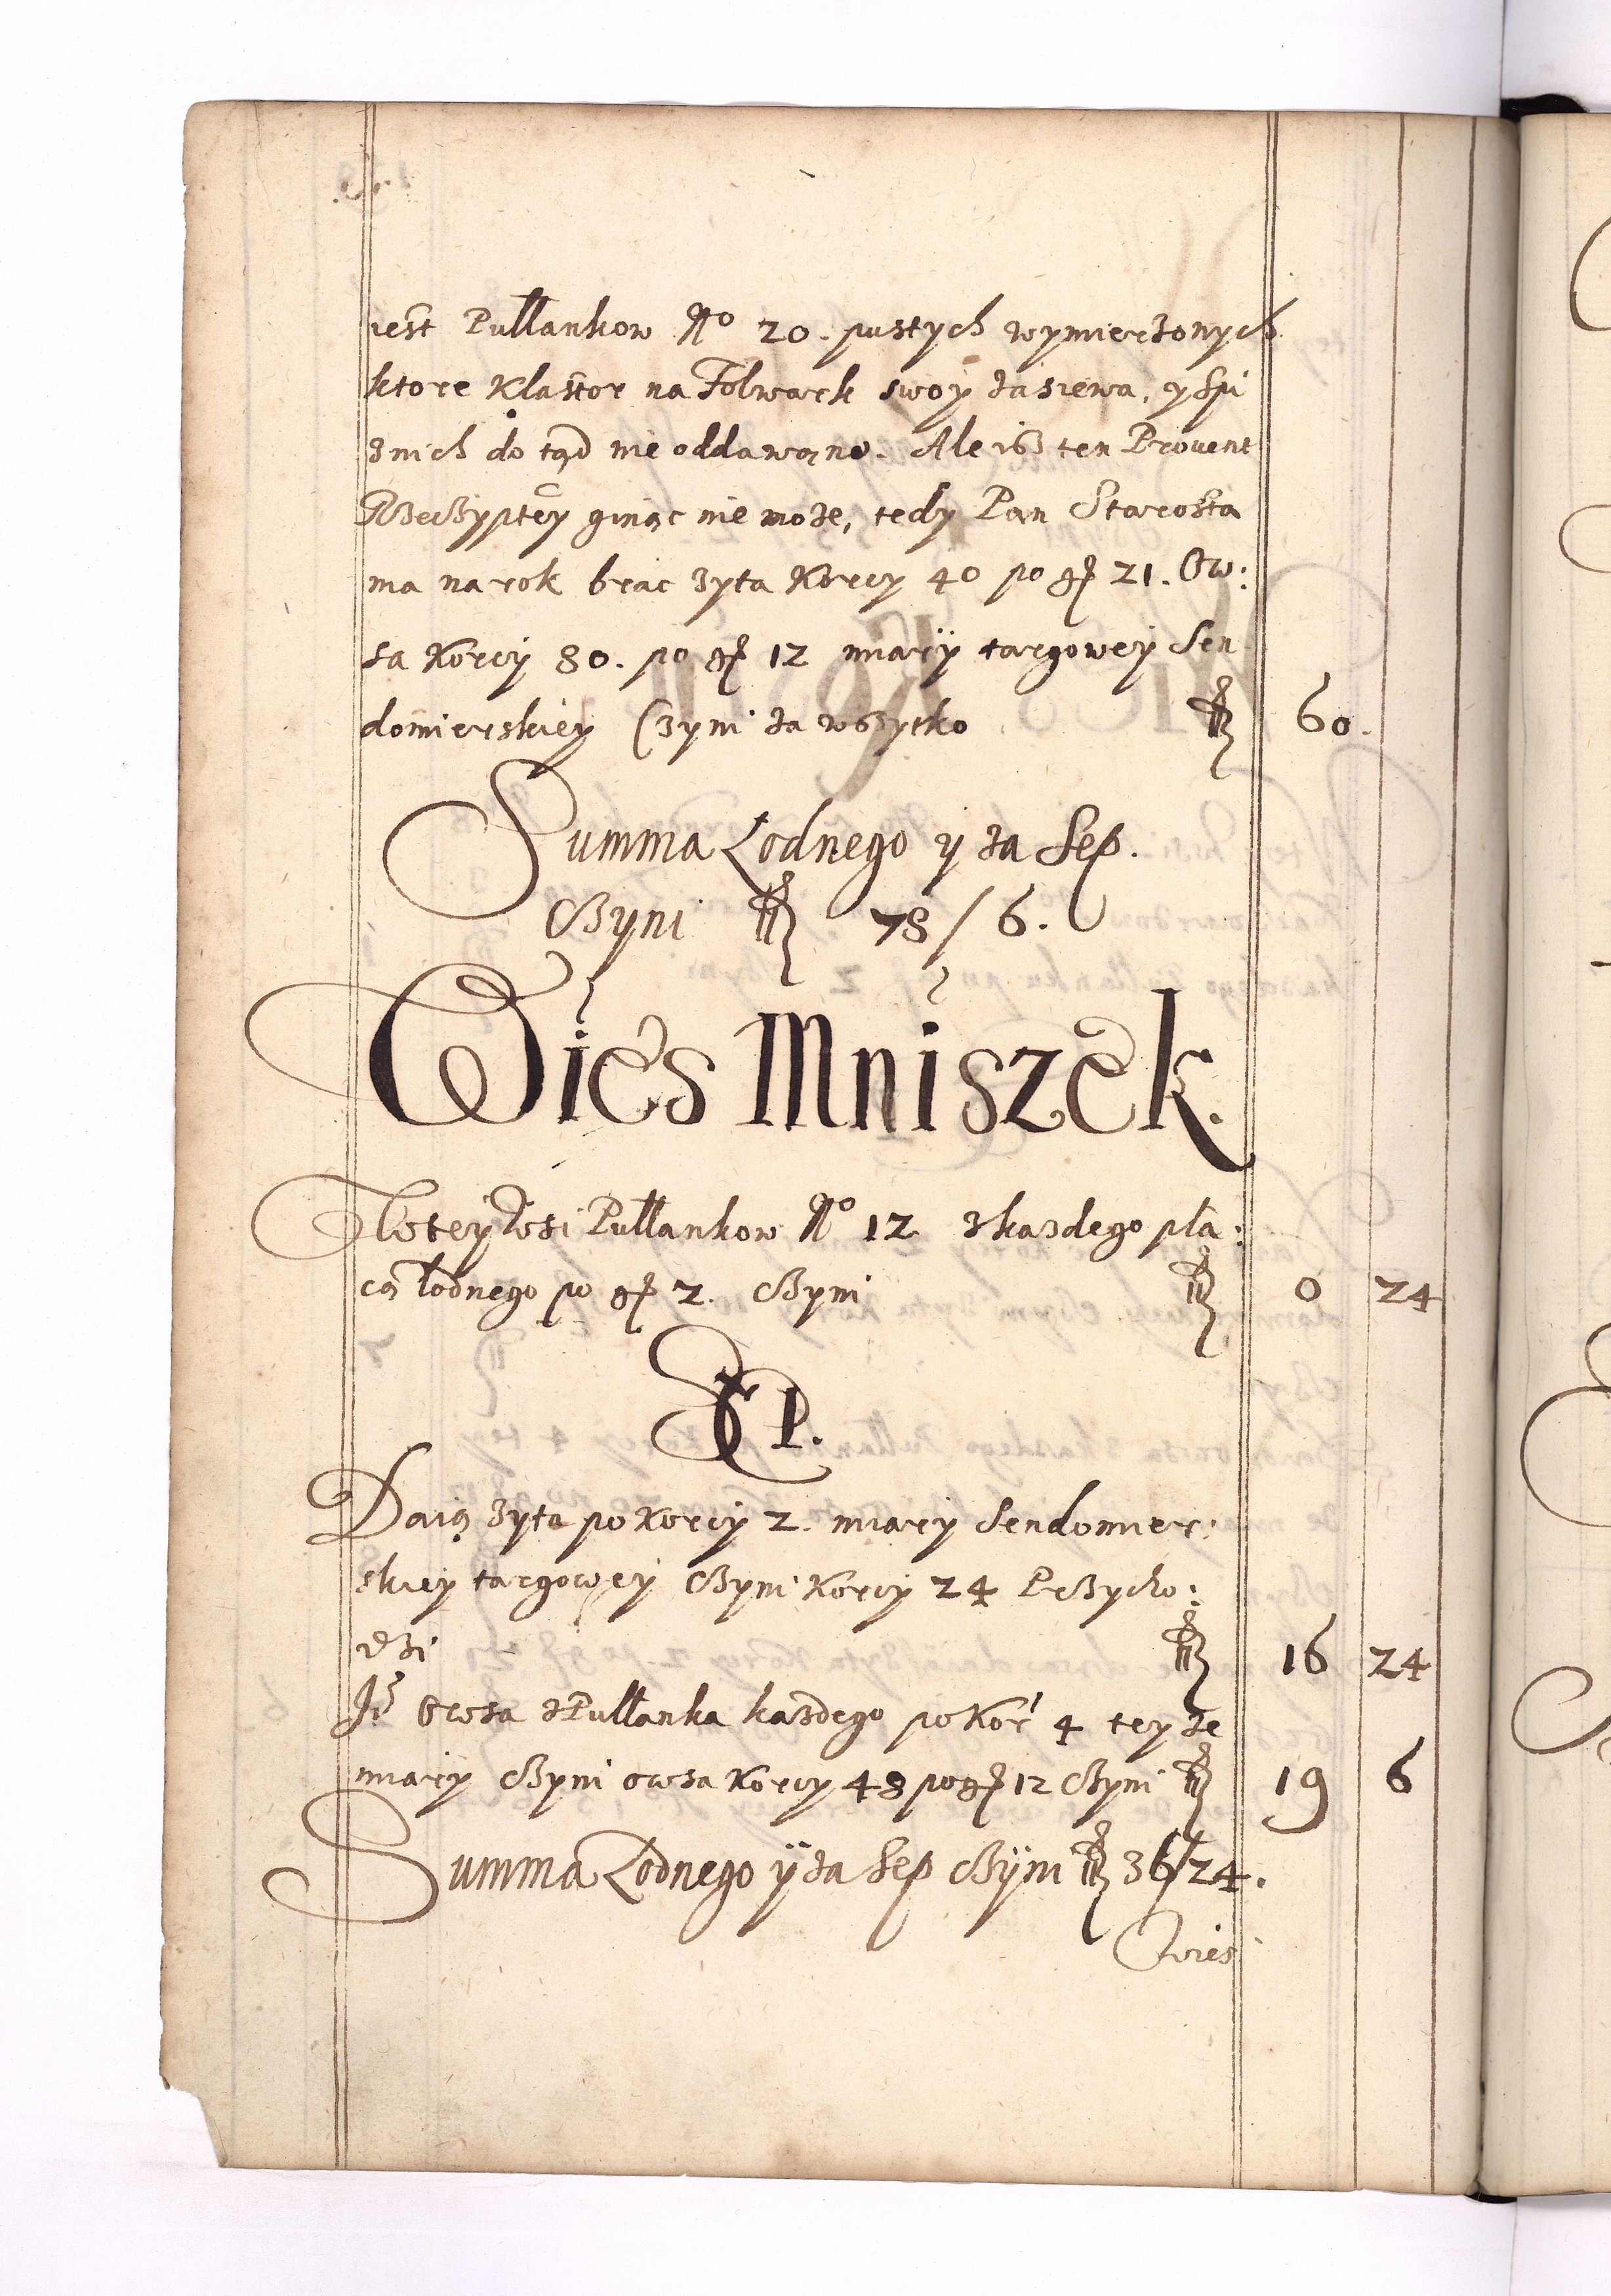 iest Pułłankow No 20. pustych wymierzonych
ktore Klasztor na Folwark swoy zasiewa, y Sep
z nich do tąd nie oddawano. Ale isz ten Prouent
Rzeczyptey ginąc nie może, tedy Pan Starosta
ma na rok brac żyta Korcy 40 po gr 21. Ow:
sa Korcy 80. po gr 12 miary targowey Sen
domierskiey Czyni za wszytko fl 60.
Summa Łodnego y za Sep.
Czyni fl 78/6.
Wies Mniszek.
W tey Wsi Pułłankow No 12 z każdego płа:
cą łodnego po gr 2. Czyni fl 0 24
SEP.
Daią żyta po Korcy 2. miary Sendomier:
skiey targowey Czyni Korcy 24 Przycho:
dzi fl 16 24
It Owsa z Pułłanka każdego po Kor 4 teyże
miary Czyni owsa Korcy 48 po gr 12 Czyni fl 19 6
Summa Łodnego y za Sep Czyni fl 36/24.
Wies